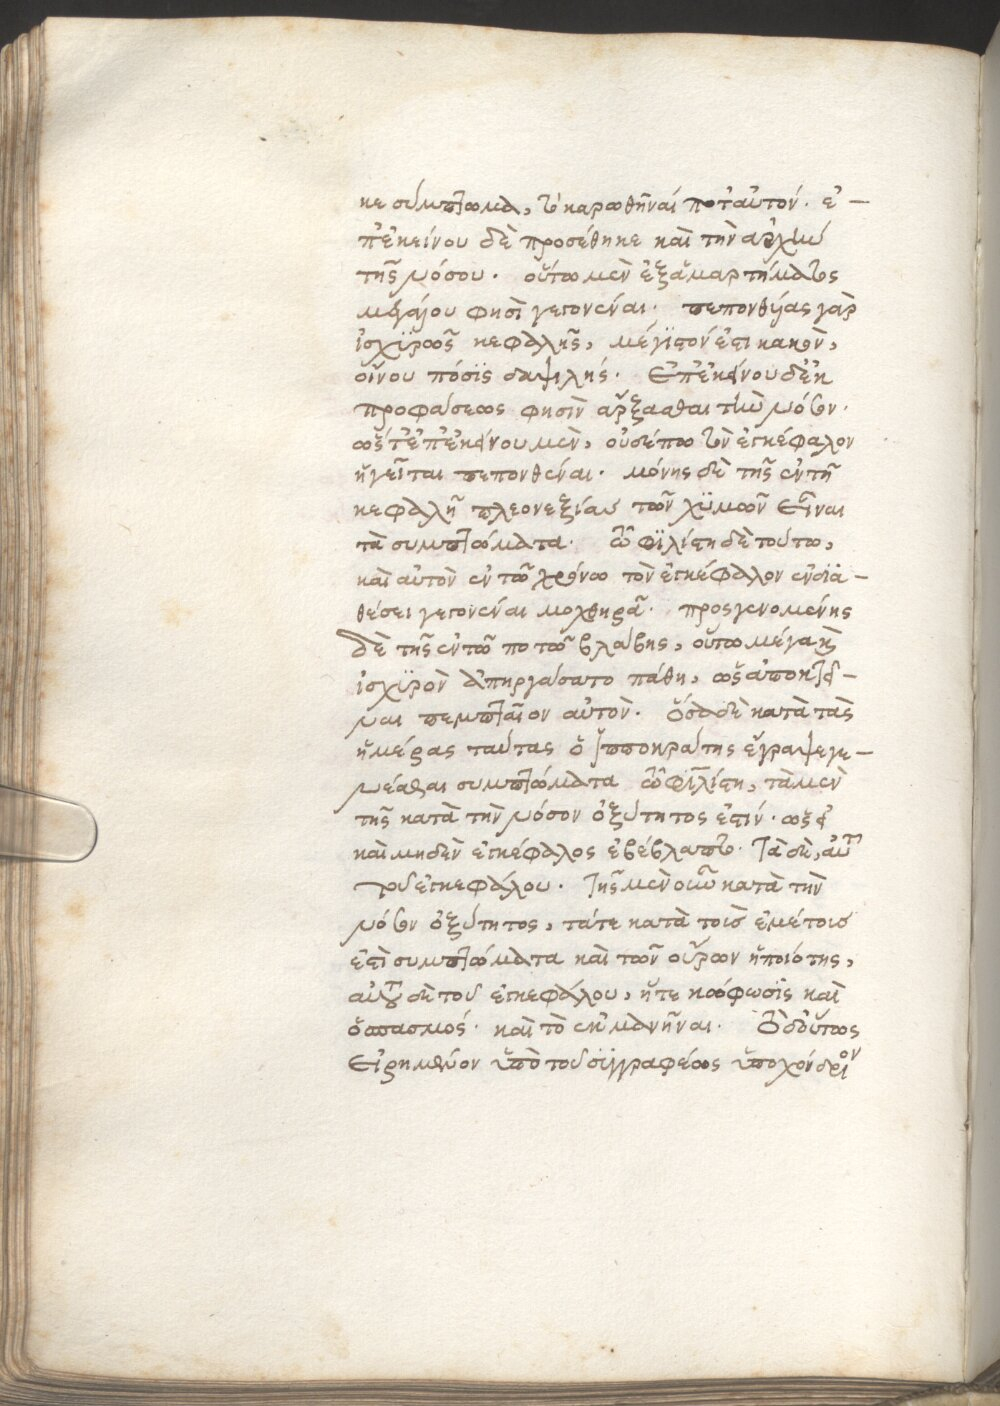 κε σύμπτωμα, τὸ καρωθῆναί ποτ' αὐτόν. ἐ-
π' ἐκείνου δὲ προσέθηκε καὶ τὴν ἀρχὴν
τῆς νόσου. οὕτω μὲν ἐξ ἁμαρτήματος
μεγάλου φησὶ γεγονέναι. πεπονθυίας γὰρ
ἰσχϋρῶς κεφαλῆς, μέγιστόν ἐστι κακὸν,
οἴνου πόσϊς δαψιλής. ἐπ' ἐκείνου δὲ ἐκ
προφάσεως φησὶν ἄρξασθαι τὴν νόσον.
ὥστ' ἐπ' ἐκείνου μὲν, οὐδέπω τὸν ἐγκέφαλον
ἡγεῖται πεπονθέναι. μόνης δὲ τῆς ἐν τῆ
κεφαλῆ πλεονεξίας τῶν χϋμῶν εἶναι
τὰ συμπτώματα. ὦ φϊλίστη δὲ τούτω,
καὶ αὐτὸν ἐν τῶ χρόνω τὸν ἐγκέφαλον ἐν δϊα-
θέσει γεγονέναι μοχθηρᾶ. προσγενομένης
δὲ τῆς ἐν τῶ ποτῶ βλάβης, οὕτω μέγα καὶ
ἰσχϋρὸν ἀπηργάσατο πάθη, ὥστ' ἀποκτεῖ-
ναι πεμπταῖον αὐτὸν. ὅσα δὲ κατὰ τὰς
ἡμέρας ταύτας ὁ ἱπποκράτης ἔγραψε γε-
νέσθαι συμπτώματα τῶ φιλίστη, τὰ μὲν
τῆς κατὰ τὴν νόσον ὀξύτητος ἐστίν. ὥστ' εἰ
καὶ μηδὲν ἐγκέφαλος ἐβέβλαπτο. τὰ δὲ, αὐτοῦ
τοῦ ἐγκεφάλου. τῆς μὲν οὖν κατὰ τὴν
νόσον ὀξύτητος, τά τε κατὰ τοὺς ἐμέτους
ἐστὶ συμπτώματα καὶ τῶν οὔρων ἡ ποιότης,
αὐτοῦ δὲ τοῦ ἐγκεφάλου, ἥ τε κώφωσϊς καὶ
ὁ σπασμός. καὶ τὸ ἐκμανῆναι. τὸ δ' οὕτως
εἰρημένον ὑπὸ τοῦ σϋγγραφέως ὑποχόνδριον